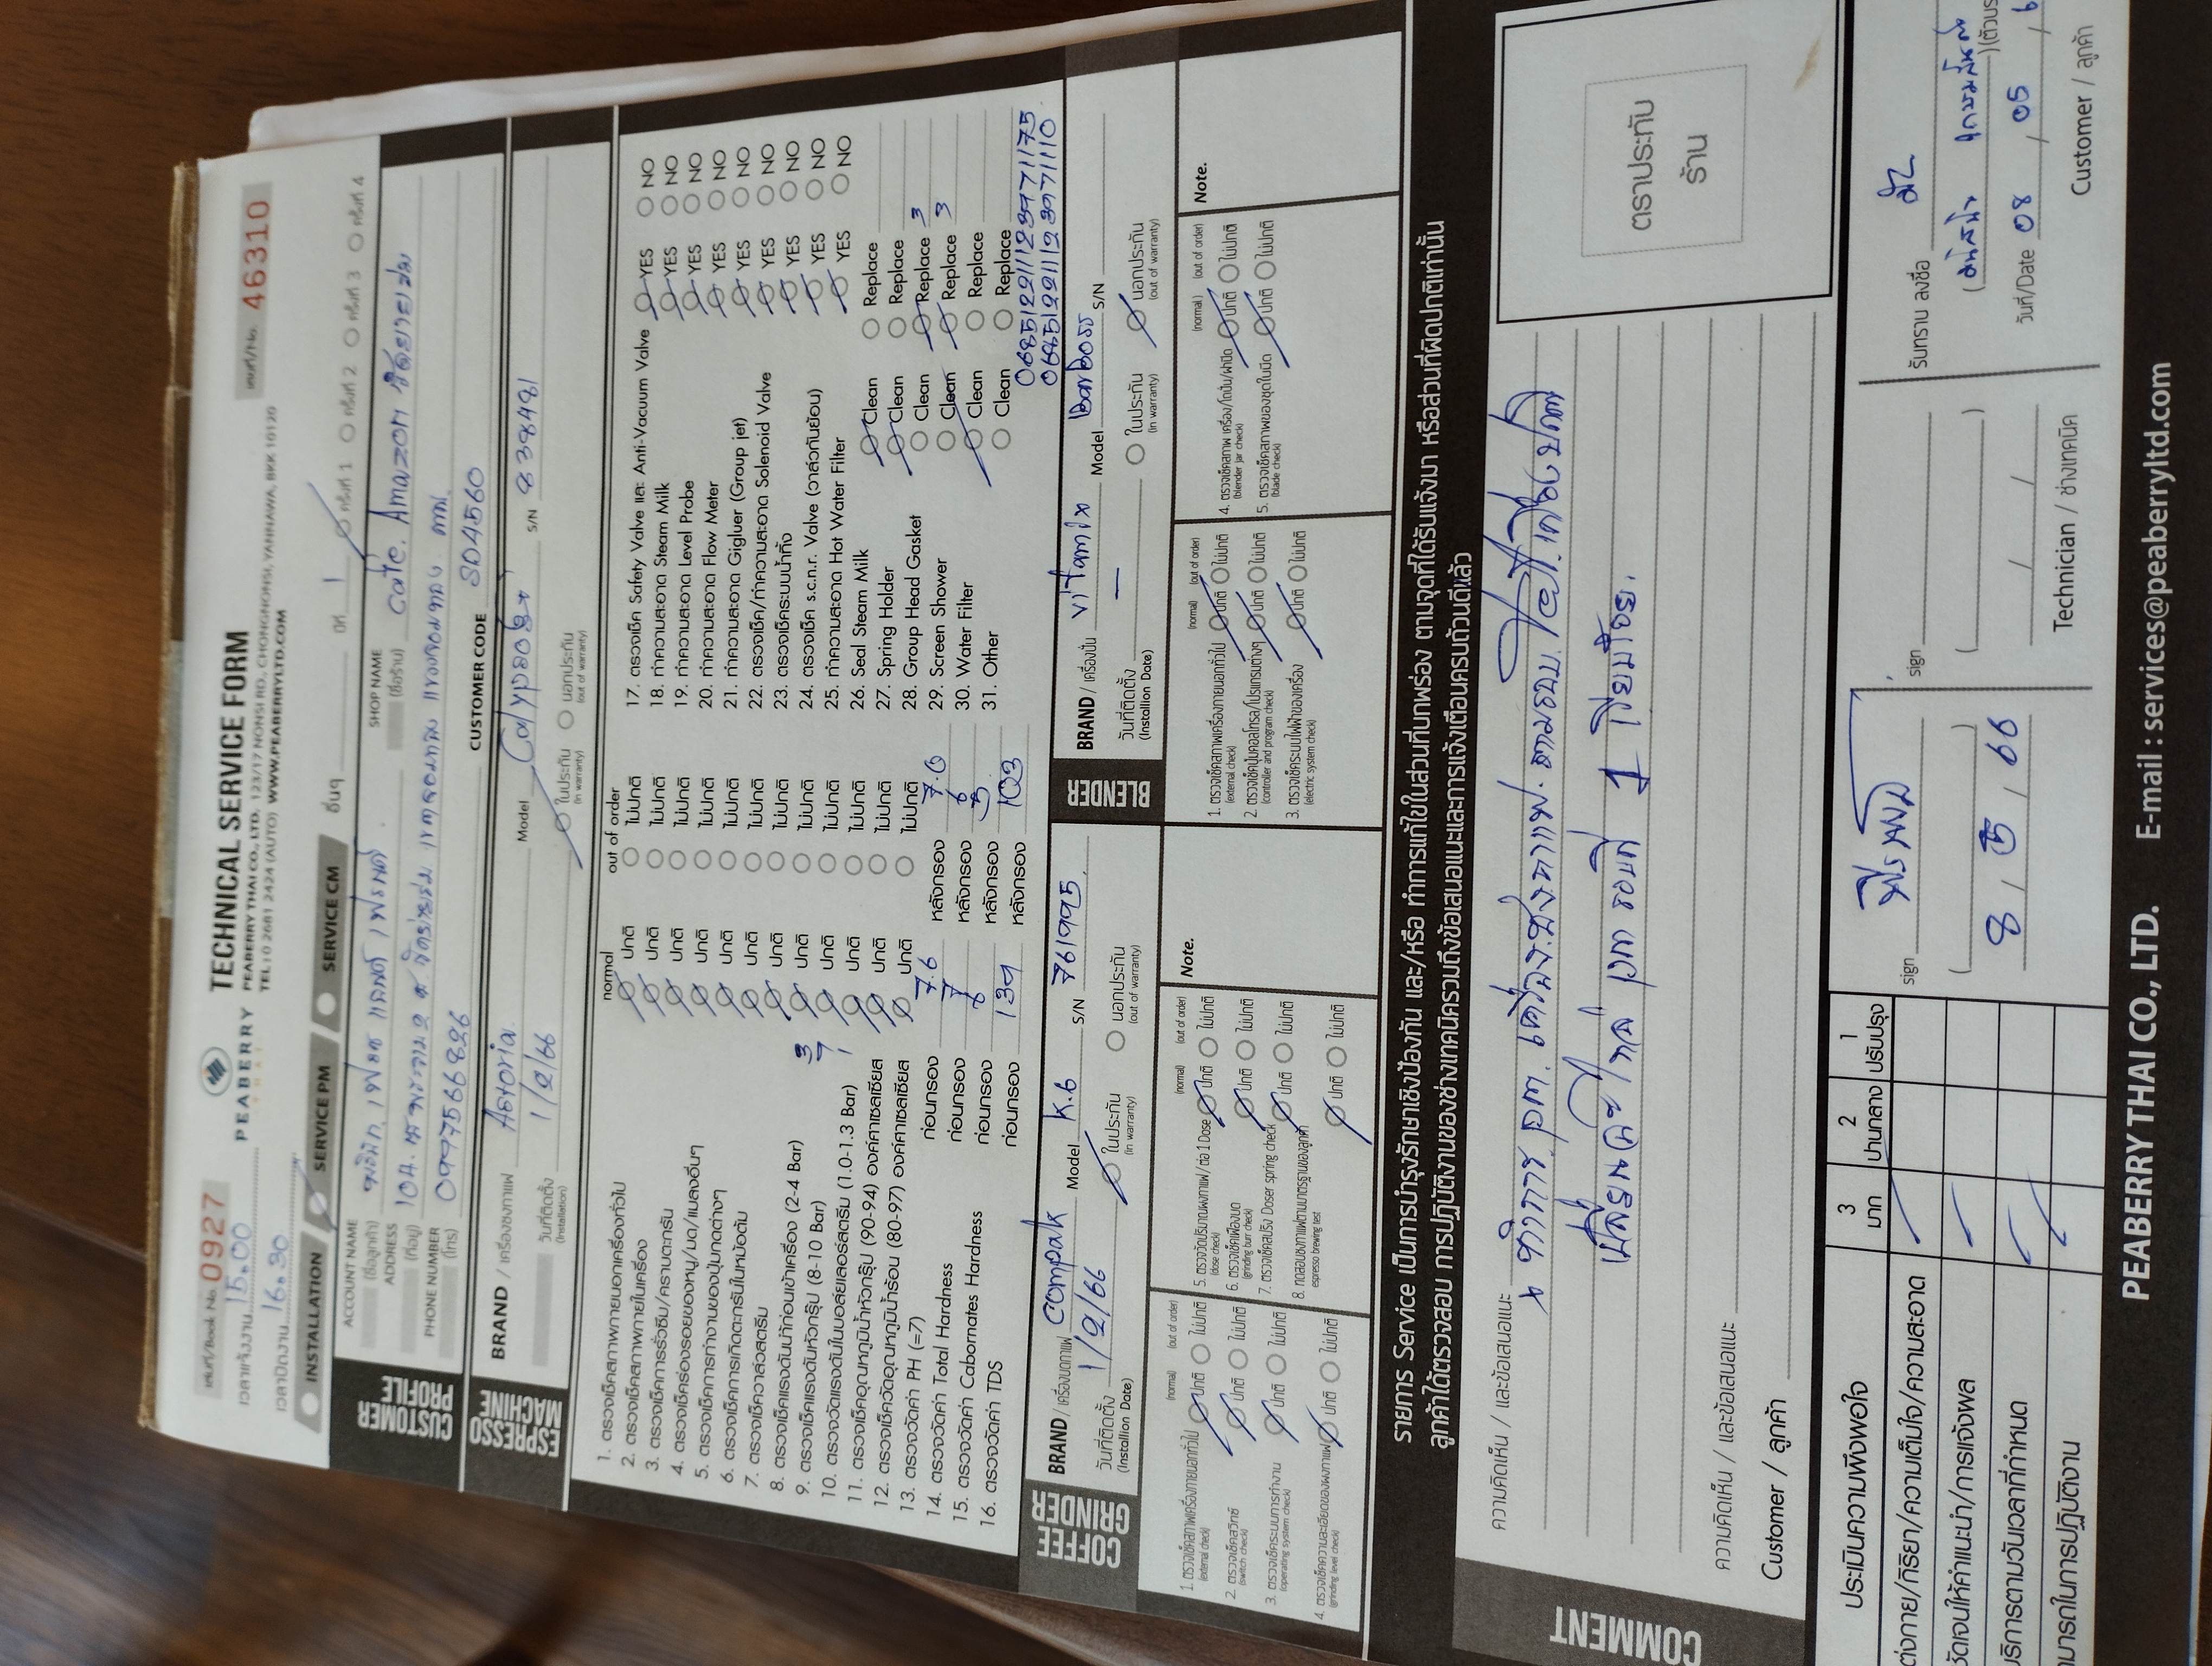 เล่มที่/Book No. 0927
เลขที่/No. 46310
เวลาแจ้งงาน 15.00
เวลาปิดงาน 16.30
PEABERRY
THAI
TECHNICAL SERVICE FORM
PEABERRY THAI CO., LTD. 123/17 NONSI RD., CHONGNONSI, YANNAWA, BKK 10120
TEL : 0 2681 2424 (AUTO) WWW.PEABERRYLTD.COM
INSTALLATION SERVICE PM SERVICE CM อื่นๆ ปีที่ 1 ครั้งที่ 1 ครั้งที่ 2 ครั้งที่ 3 ครั้งที่ 4
CUSTOMER PROFILE
ACCOUNT NAME (ชื่อลูกค้า)
SHOP NAME (ชื่อร้าน) Cafe. Amazon
ADDRESS (ที่อยู่)
PHONE NUMBER (โทร) 0997566826
CUSTOMER CODE SD4560
ESPRESSO MACHINE
BRAND / เครื่องชงกาแฟ Astoria. Model Calypso S/N 838481
วันที่ติดตั้ง (Installation) 1/2/66 ในประกัน (in warranty) นอกประกัน (out of warranty)
normal out of order
1. ตรวจเช็คสภาพภายนอกเครื่องทั่วไป ปกติ ไม่ปกติ
2. ตรวจเช็คสภาพภายในเครื่อง ปกติ ไม่ปกติ
3. ตรวจเช็คการรั่วซึม/คราบตะกรัน ปกติ ไม่ปกติ
4. ตรวจเช็คร่องรอยของหนู/มด/แมลงอื่นๆ ปกติ ไม่ปกติ
5. ตรวจเช็คการทำงานของปุ่มกดต่างๆ ปกติ ไม่ปกติ
6. ตรวจเช็คการเกิดตะกรันในหม้อต้ม ปกติ ไม่ปกติ
7. ตรวจเช็ควาล์วสตรีม ปกติ ไม่ปกติ
8. ตรวจเช็คแรงดันน้ำก่อนเข้าเครื่อง (2-4 Bar) 3 ปกติ ไม่ปกติ
9. ตรวจเช็คแรงดันหัวกรุ๊ป (8-10 Bar) 9 ปกติ ไม่ปกติ
10. ตรวจวัดแรงดันในบอล์ยเลอร์สตรีม (1.0-1.3 Bar) 1 ปกติ ไม่ปกติ
11. ตรวจเช็คอุณหภูมิน้ำหัวกรุ๊ป (90-94) องค์ศาเซลเซียส ปกติ ไม่ปกติ
12. ตรวจเช็ควัดอุณหภูมิน้ำร้อน (80-97) องค์ศาเซลเซียส ปกติ ไม่ปกติ
13. ตรวจวัดค่า PH (=7) ก่อนกรอง 7.6 หลังกรอง 7.0
14. ตรวจวัดค่า Total Hardness ก่อนกรอง 7 หลังกรอง 6
15. ตรวจวัดค่า Cabornates Hardness ก่อนกรอง 8 หลังกรอง 5
16. ตรวจวัดค่า TDS ก่อนกรอง 139 หลังกรอง 103
17. ตรวจเช็ค Safety Valve และ Anti-Vacuum Valve YES NO
18. ทำความสะอาด Steam Milk YES NO
19. ทำความสะอาด Level Probe YES NO
20. ทำความสะอาด Flow Meter YES NO
21. ทำความสะอาด Gigluer (Group jet) YES NO
22. ตรวจเช็ค/ทำความสะอาด Solenoid Valve YES NO
23. ตรวจเช็คระบบน้ำทิ้ง YES NO
24. ตรวจเช็ค s.c.n.r. Valve (วาล์วกันย้อน) YES NO
25. ทำความสะอาด Hot Water Filter YES NO
26. Seal Steam Milk Clean Replace
27. Spring Holder Clean Replace
28. Group Head Gasket Clean Replace 3
29. Screen Shower Clean Replace 3
30. Water Filter Clean Replace
31. Other Clean Replace
COFFEE GRINDER
BRAND / เครื่องบดกาแฟ Compak Model K.6 S/N 761995
วันที่ติดตั้ง (Installion Date) 1/2/66 ในประกัน (in warranty) นอกประกัน (out of warranty)
(normal) (out of order) (normal) (out of order) Note.
1. ตรวจเช็คสภาพเครื่องภายนอกทั่วไป (external check) ปกติ ไม่ปกติ
2. ตรวจเช็คสวิทซ์ (switch check) ปกติ ไม่ปกติ
3. ตรวจเช็คระบบการทำงาน (operating system check) ปกติ ไม่ปกติ
4. ตรวจเช็คความละเอียดของผงกาแฟ (grinding level check) ปกติ ไม่ปกติ
5. ตรวจวัดปริมาณผงกาแฟ/ต่อ 1 Dose (dose check) ปกติ ไม่ปกติ
6. ตรวจเช็คเฟืองบด (grinding burr check) ปกติ ไม่ปกติ
7. ตรวจเช็คสปริง Doser spring check ปกติ ไม่ปกติ
8. ทดสอบชงกาแฟตามมาตรฐานของลูกค้า espresso brewing test ปกติ ไม่ปกติ
BLENDER
BRAND / เครื่องปั่น Vitamix Model barboss S/N
วันที่ติดตั้ง (Installation Date) — ในประกัน (in warranty) นอกประกัน (out of warranty)
(normal) (out of order) (normal) (out of order) Note.
1. ตรวจเช็คสภาพเครื่องภายนอกทั่วไป (external check) ปกติ ไม่ปกติ
2. ตรวจเช็คปุ่มคอลโทรล/โปรแกรมต่างๆ (controller and program check) ปกติ ไม่ปกติ
3. ตรวจเช็คระบบไฟฟ้าของเครื่อง (electric system check) ปกติ ไม่ปกติ
4. ตรวจเช็คสภาพ เครื่อง/โถปั่น/ฝาปิด (blender jar check) ปกติ ไม่ปกติ
5. ตรวจเช็คสภาพของชุดใบมีด (blade check) ปกติ ไม่ปกติ
รายการ Service เป็นการบำรุงรักษาเชิงป้องกัน และ/หรือ ทำการแก้ไขในส่วนที่บกพร่อง ตามจุดที่ได้รับแจ้งมา หรือส่วนที่ผิดปกติเท่านั้น
ลูกค้าได้ตรวจสอบ การปฏิบัติงานของช่างเทคนิครวมถึงข้อเสนอแนะและการแจ้งเตือนครบถ้วนดีแล้ว
COMMENT
ความคิดเห็น / และข้อเสนอแนะ
ตราประทับ
ร้าน
ความคิดเห็น / และข้อเสนอแนะ
Customer / ลูกค้า
ประเมินความพึงพอใจ 3 มาก 2 ปานกลาง 1 ปรับปรุง
ต่งกาย/กิริยา/ความเต็มใจ/ความสะอาด
วัดเจนให้คำแนะนำ/การแจ้งผล
บริการตามวันเวลาที่กำหนด
มารถในการปฏิบัติงาน
sign
8 / 5 / 66
sign
Technician / ช่างเทคนิค
รับทราบ ลงชื่อ
วันที่/Date 08 / 05 /
Customer / ลูกค้า
PEABERRY THAI CO., LTD. E-mail : services@peaberryltd.com